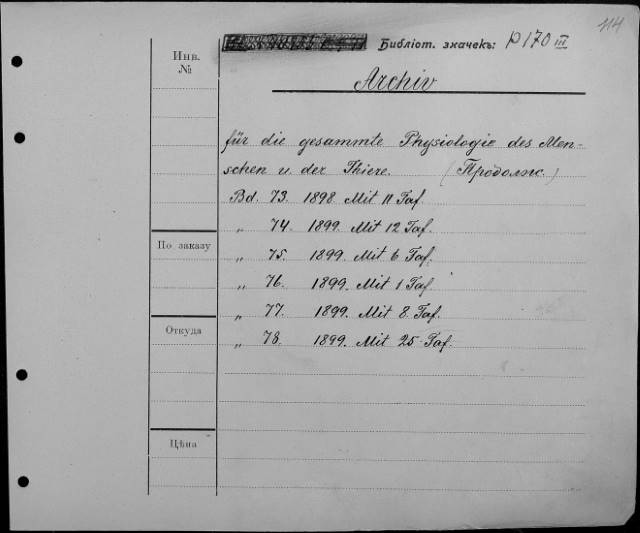 114
Библіот. значекъ: P 170 III
Инв. №
Archiv
für die gesammte Physiologie des Men-
schen u. der Thiere. (Продолж.)
Bd. 73. 1898. Mit 11 Taf.
„ 74. 1899. Mit 12 Taf.
По заказу
„ 75. 1899. Mit 6 Taf.
„ 76. 1899. Mit 1 Taf.
„ 77. 1899. Mit 8 Taf.
Откуда
„ 78. 1899. Mit 25 Taf.
Цѣна